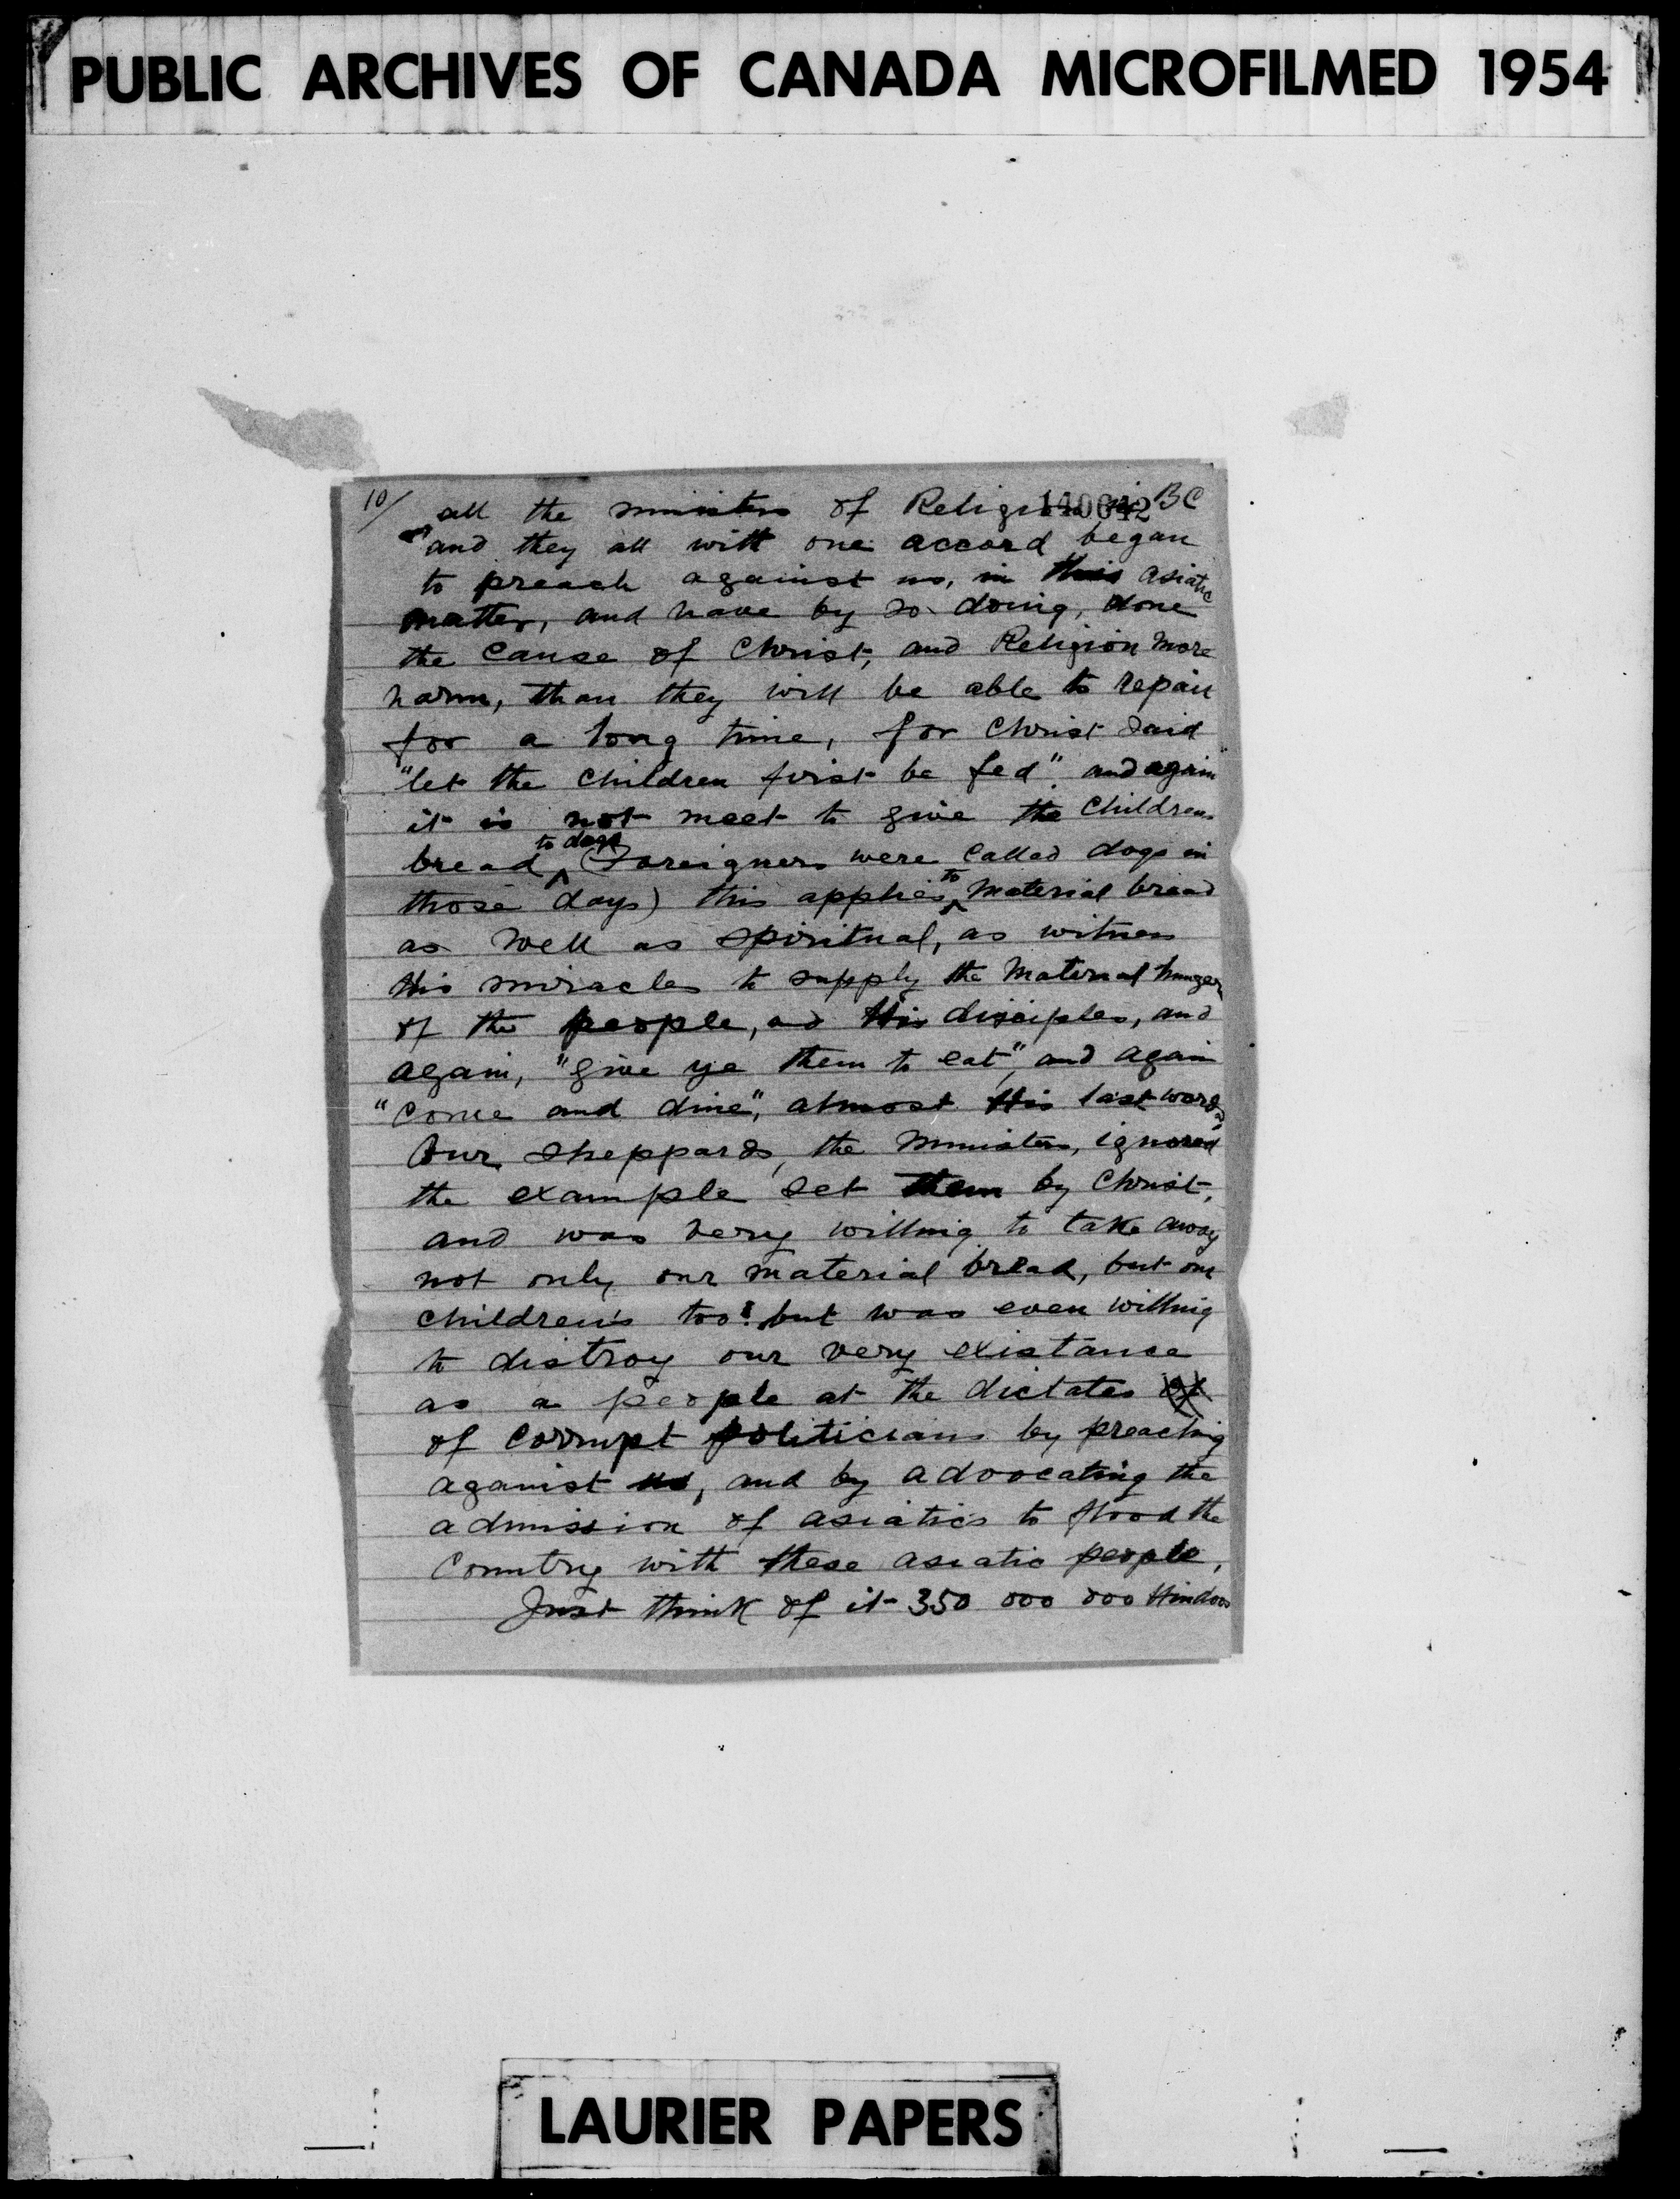 PUBLIC ARCHIVES OF CANADA MICROFILMED 1954
10/
140642
all the ministers of Religion in BC
and they all with one accord began
to preach against us, in this asiatic
matter, and have by so doing, done
the cause of Christ, and Religion more
harm, than they will be able to repair
for a long time, for Christ said
"let the children first be fed" and again "
it is not meet to give the childrens
to dogs
bread ^ (Foreigners were called dogs in
those days) this applies ^to material bread
as well as spiritual, as witness
His miracles to supply the material hunger
of the people, and His disciples, and
again, "give ye them to eat", and again
"come and dine", almost His last words
Our sheppards, the ministers, ignored
the example set them by Christ,
and was very willing to take away
not only our material bread, but our
children's too! but was even willing
to distroy our very existance
as a people at the dictates of
of corrupt politicians by preaching
against us, and by advocating the
admission of asiatics to flood the
country with these asiatic people,
Just think of it 350 000 000 Hindoos
LAURIER PAPERS